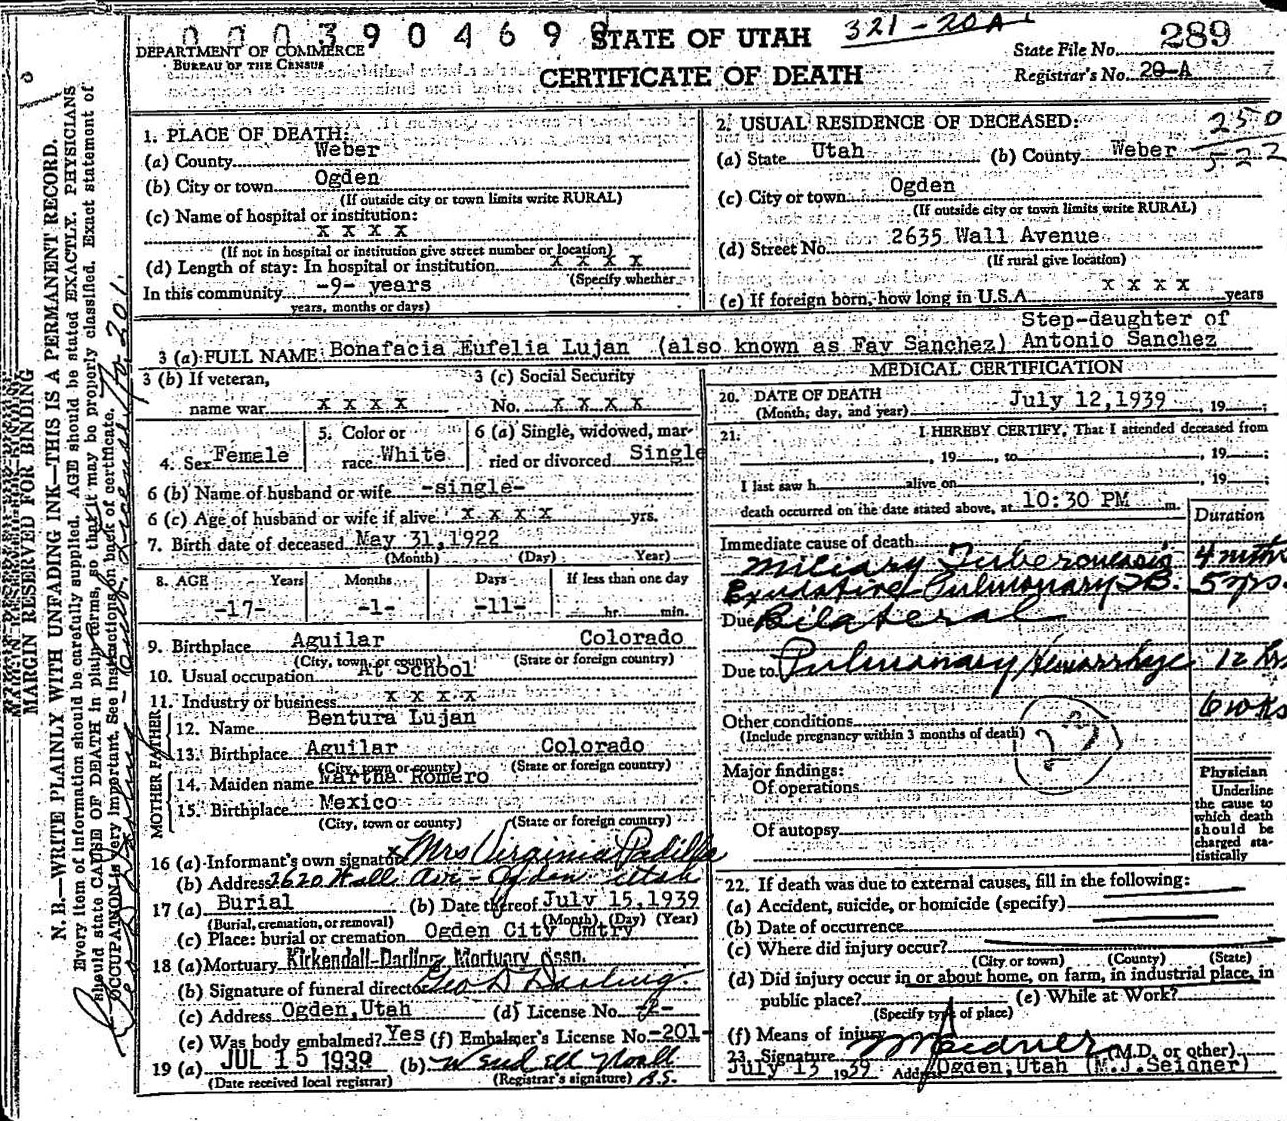 0 0 0 3 9 0 4 6 9 8 STATE OF UTAH 321-20A
DEPARTMENT OF COMMERCE
BUREAU OF THE CENSUS
CERTIFICATE OF DEATH
State File No. 289
Registrar's No. 20-A
MARGIN RESERVED FOR BINDING
N. B.—WRITE PLAINLY WITH UNFADING INK—THIS IS A PERMANENT RECORD.
Every item of information should be carefully supplied. AGE should be stated EXACTLY. PHYSICIANS
should state CAUSE OF DEATH in plain terms, so that it may be properly classified. Exact statement of
OCCUPATION is very important. See instructions on back of certificate.
1. PLACE OF DEATH:
(a) County Weber
(b) City or town Ogden
(If outside city or town limits write RURAL)
(c) Name of hospital or institution:
X X X X
(If not in hospital or institution give street number or location)
(d) Length of stay: In hospital or institution X X X X
(Specify whether
In this community -9- years
years, months or days)
2. USUAL RESIDENCE OF DECEASED: 250
522
(a) State Utah (b) County Weber
(c) City or town Ogden
(If outside city or town limits write RURAL)
(d) Street No. 2635 Wall Avenue
(If rural give location)
(e) If foreign born, how long in U.S.A. X X X X years
3 (a) FULL NAME: Bonafacia Eufelia Lujan (also known as Fay Sanchez) Step-daughter of Antonio Sanchez
3 (b) If veteran,
name war X X X X
3 (c) Social Security
No. X X X X
4. Sex Female
5. Color or
race White
6 (a) Single, widowed, mar-
ried or divorced Single
6 (b) Name of husband or wife -single-
6 (c) Age of husband or wife if alive X X X X yrs.
7. Birth date of deceased May 31, 1922
(Month) (Day) Year)
8. AGE Years Months Days If less than one day
-17- -1- -11- hr. min.
9. Birthplace Aguilar Colorado
(City, town or county) (State or foreign country)
10. Usual occupation At School
11. Industry or business X X X X
FATHER
12. Name Bentura Lujan
13. Birthplace Aguilar Colorado
(City, town or county) (State or foreign country)
MOTHER
14. Maiden name Martha Romero
15. Birthplace Mexico
(City, town or county) (State or foreign country)
16 (a) Informant's own signature x Mrs Virginia Padilla
(b) Address 2620 Wall Ave - Ogden Utah
17 (a) Burial (b) Date thereof July 15, 1939
(Burial, cremation, or removal) (Month) (Day) (Year)
(c) Place: burial or cremation Ogden City Cmtry
18 (a) Mortuary Kirkendall-Darling Mortuary Assn.
(b) Signature of funeral director Geo D Darling
(c) Address Ogden, Utah (d) License No. -2-
(e) Was body embalmed? Yes (f) Embalmer's License No. -201-
19 (a) JUL 15 1939 (b) Wendell Noall
(Date received local registrar) (Registrar's signature) B.S.
MEDICAL CERTIFICATION
20. DATE OF DEATH
(Month, day, and year) July 12, 1939, 19
21. I HEREBY CERTIFY, That I attended deceased from
, 19 , to , 19 ;
I last saw h alive on , 19 ;
death occurred on the date stated above, at 10:30 PM m.
Duration
Immediate cause of death
Miliary Tuberculosis 4 mths
Exudative Pulmonary TB. 5 yrs
Due Bilateral
Due to Pulmonary Hemorrhage 12 Hrs
6 wks
Other conditions
(Include pregnancy within 3 months of death)
Major findings:
Of operations
Of autopsy
Physician
Underline
the cause to
which death
should be
charged sta-
tistically
22. If death was due to external causes, fill in the following:
(a) Accident, suicide, or homicide (specify)
(b) Date of occurrence
(c) Where did injury occur?
(City or town) (County) (State)
(d) Did injury occur in or about home, on farm, in industrial place, in
public place? (e) While at Work?
(Specify type of place)
(f) Means of injury
23. Signature M J Seidner (M.D. or other)
July 13 1939 Address Ogden, Utah (M.J. Seidner)